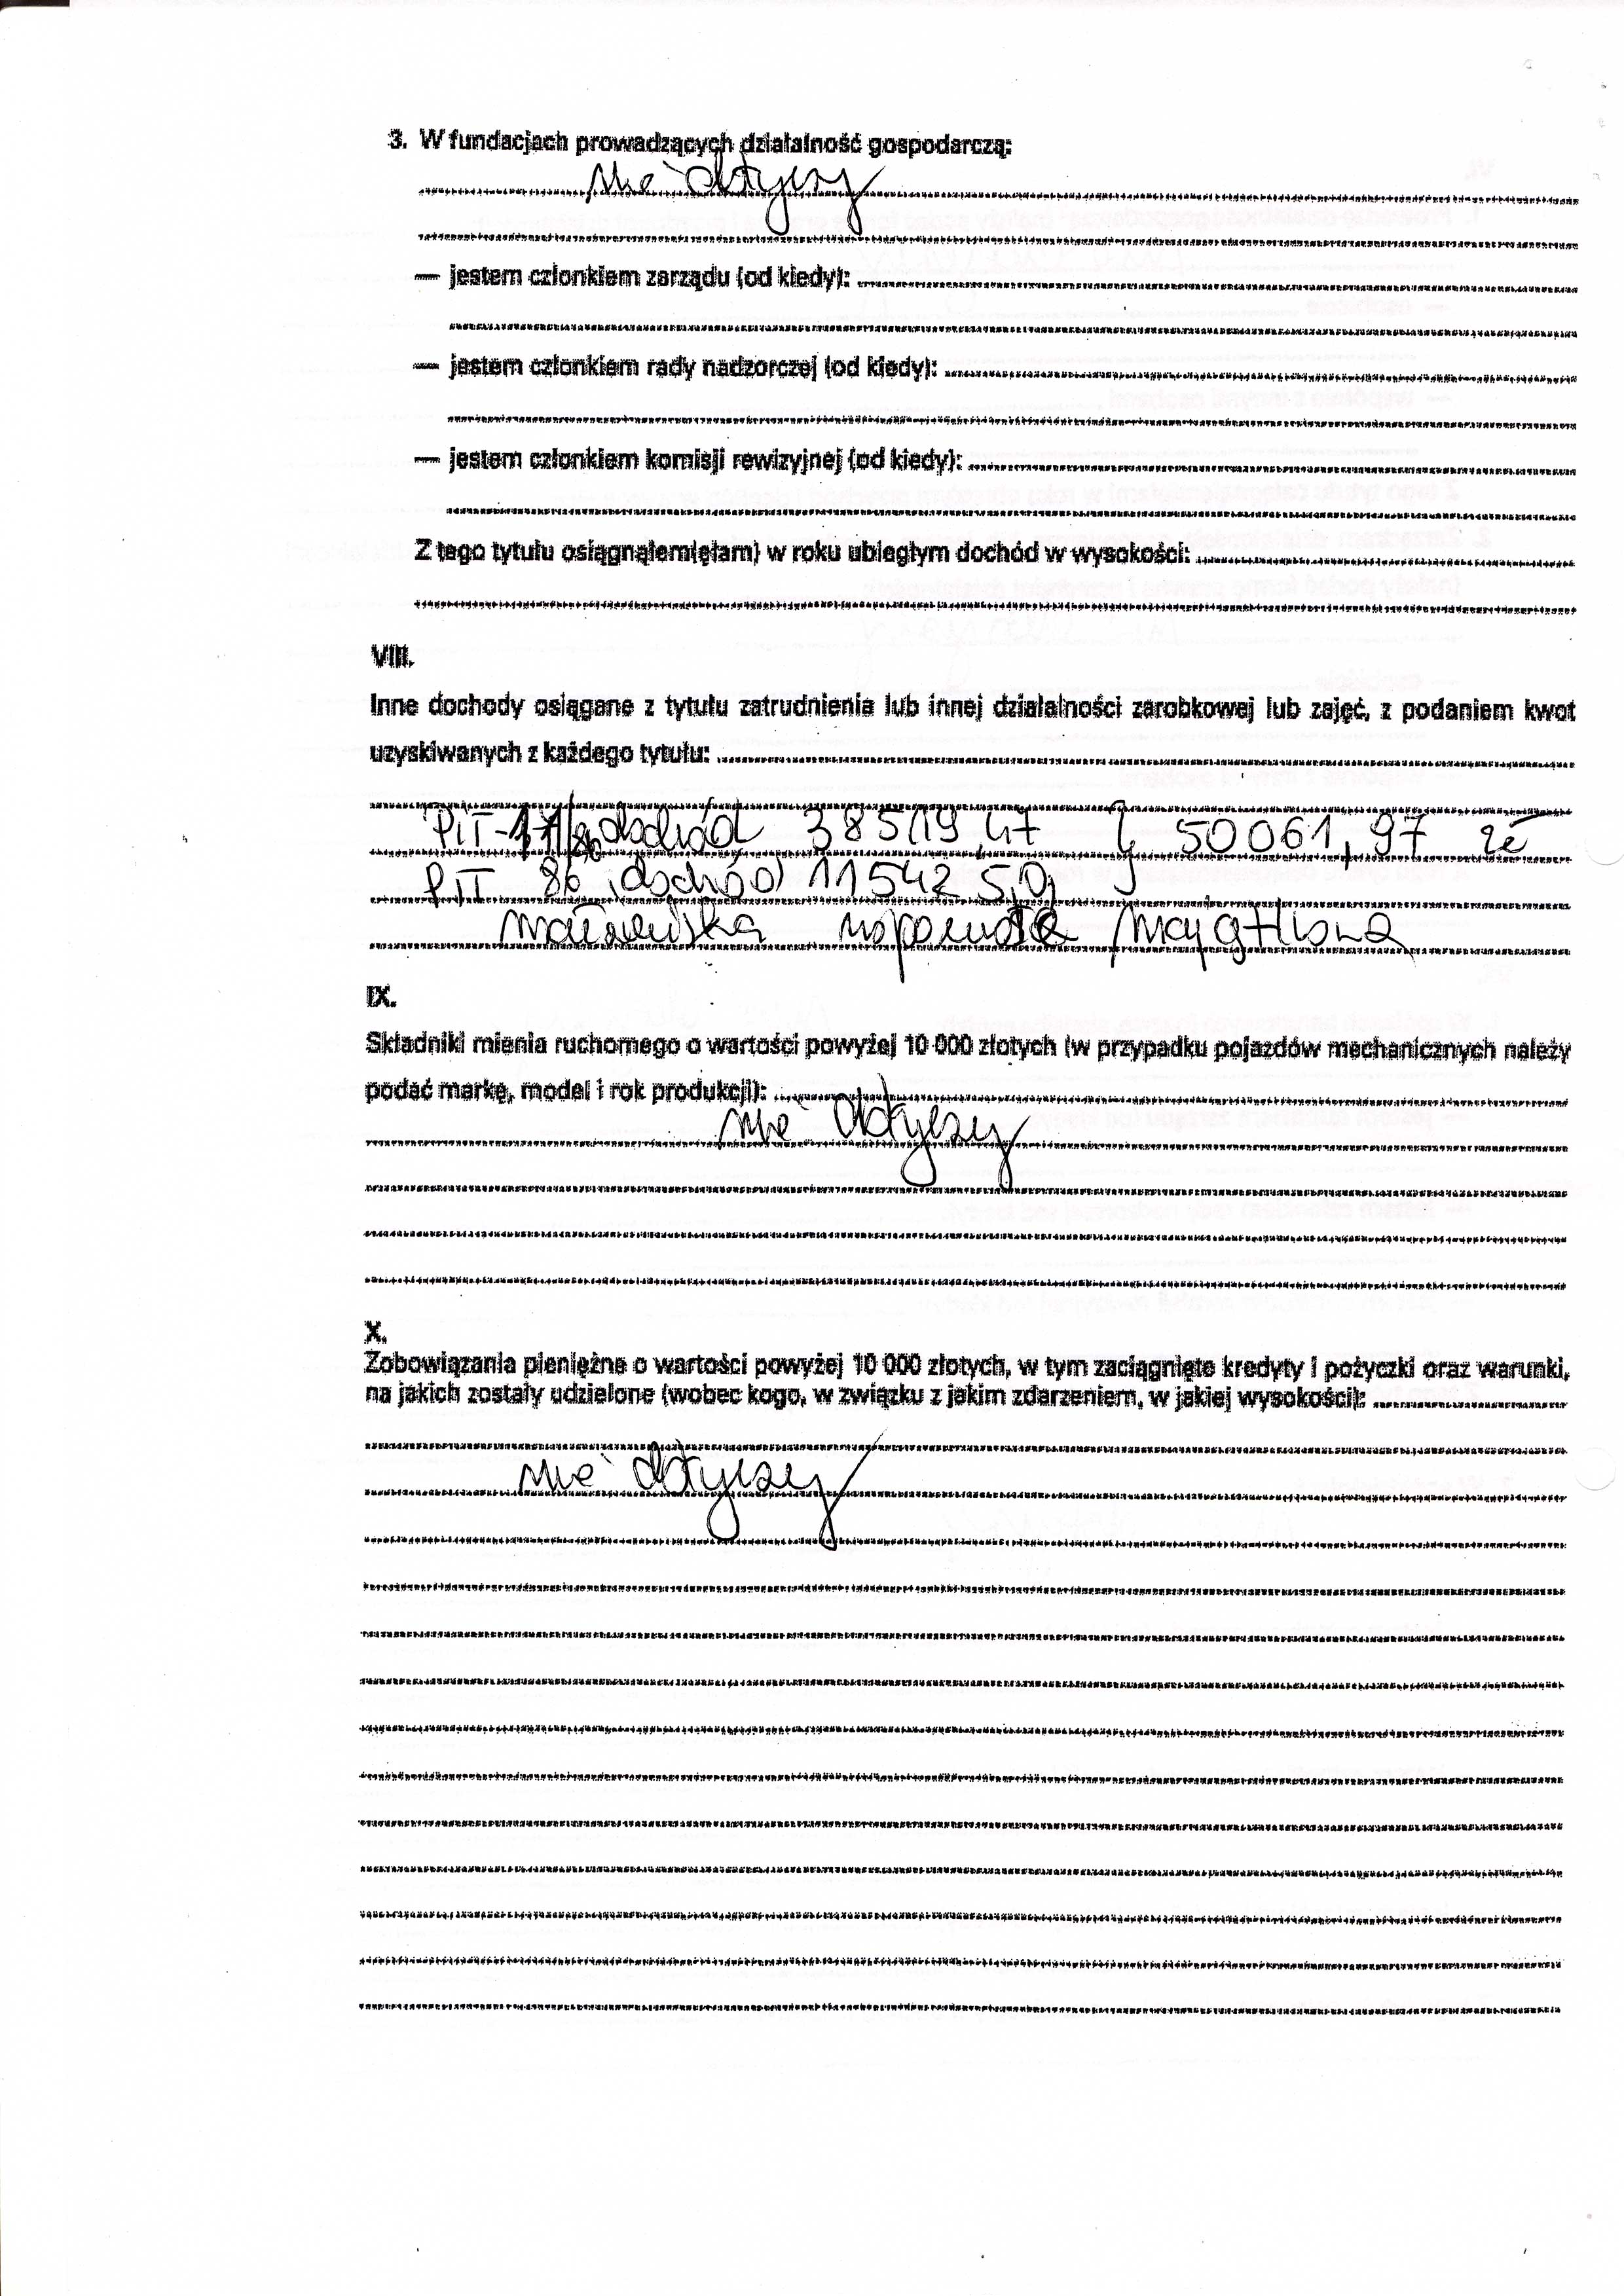 3. W fundacjach prowadzących działalność gospodarczą:
nie dotyczy
— jestem członkiem zarządu (od kiedy):
— jestem członkiem rady nadzorczej (od kiedy):
— jestem członkiem komisji rewizyjnej (od kiedy):
Z tego tytułu osiągnąłem(ęłam) w roku ubiegłym dochód w wysokości:
VIII.
Inne dochody osiągane z tytułu zatrudnienia lub innej działalności zarobkowej lub zajęć, z podaniem kwot
uzyskiwanych z każdego tytułu:
PIT-11 dochód 38519,47 } 50061,97 zł
PIT 8b dochód 11542,50
małżeńska wspólność majątkowa
IX.
Składniki mienia ruchomego o wartości powyżej 10 000 złotych (w przypadku pojazdów mechanicznych należy
podać markę, model i rok produkcji):
nie dotyczy
X.
Zobowiązania pieniężne o wartości powyżej 10 000 złotych, w tym zaciągnięte kredyty i pożyczki oraz warunki,
na jakich zostały udzielone (wobec kogo, w związku z jakim zdarzeniem, w jakiej wysokości):
nie dotyczy